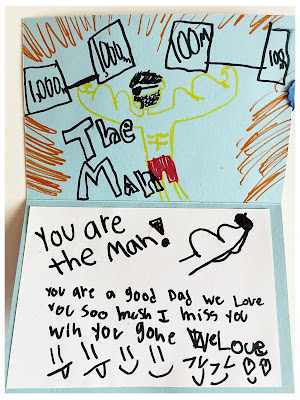 1,000m 1000m 100M
The
Man
You are
the Man!
You are a good Dad we Love
you soo mush I miss you
wih you gone We Love